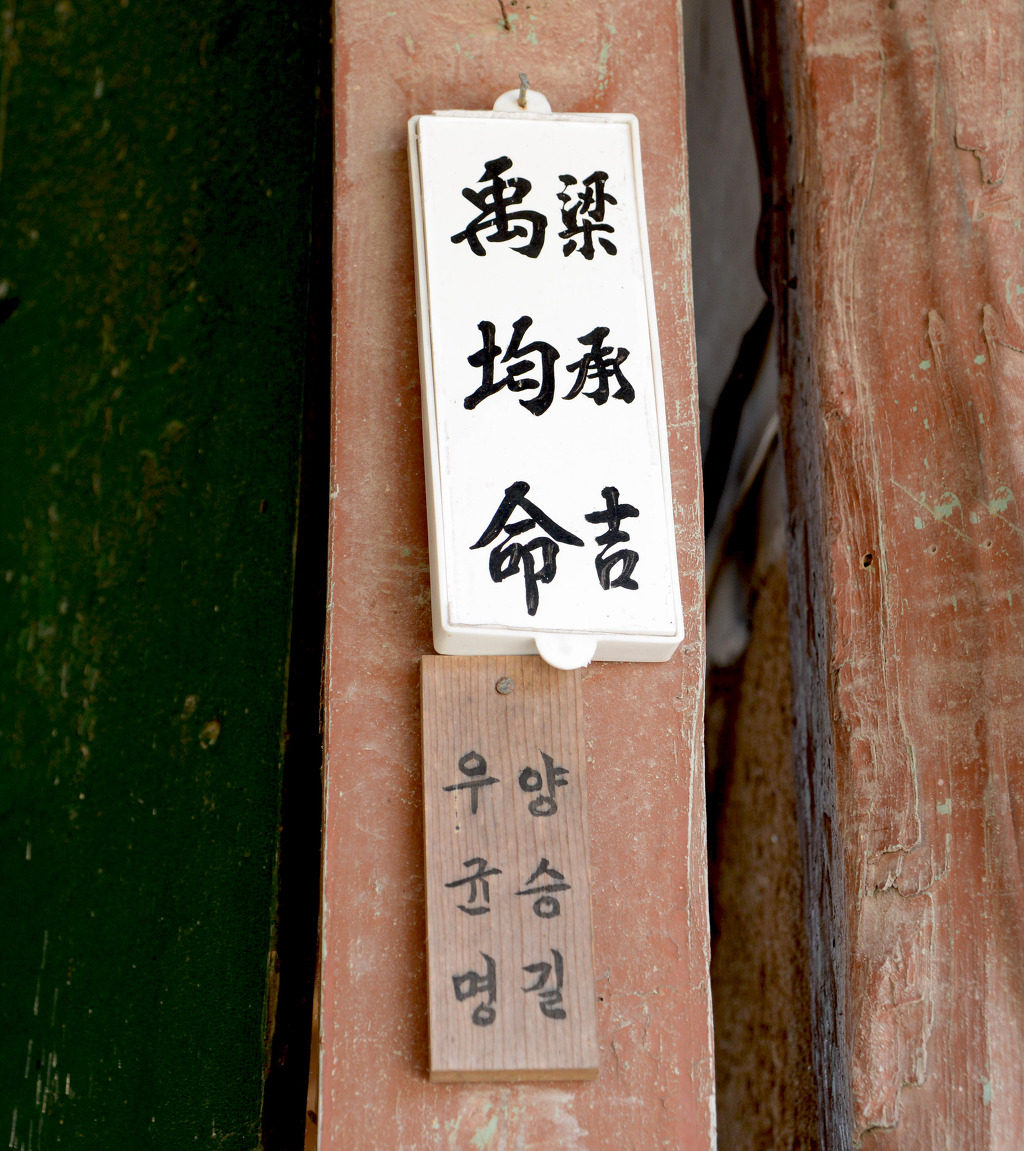 梁承吉
禹均命
양승길
우균명